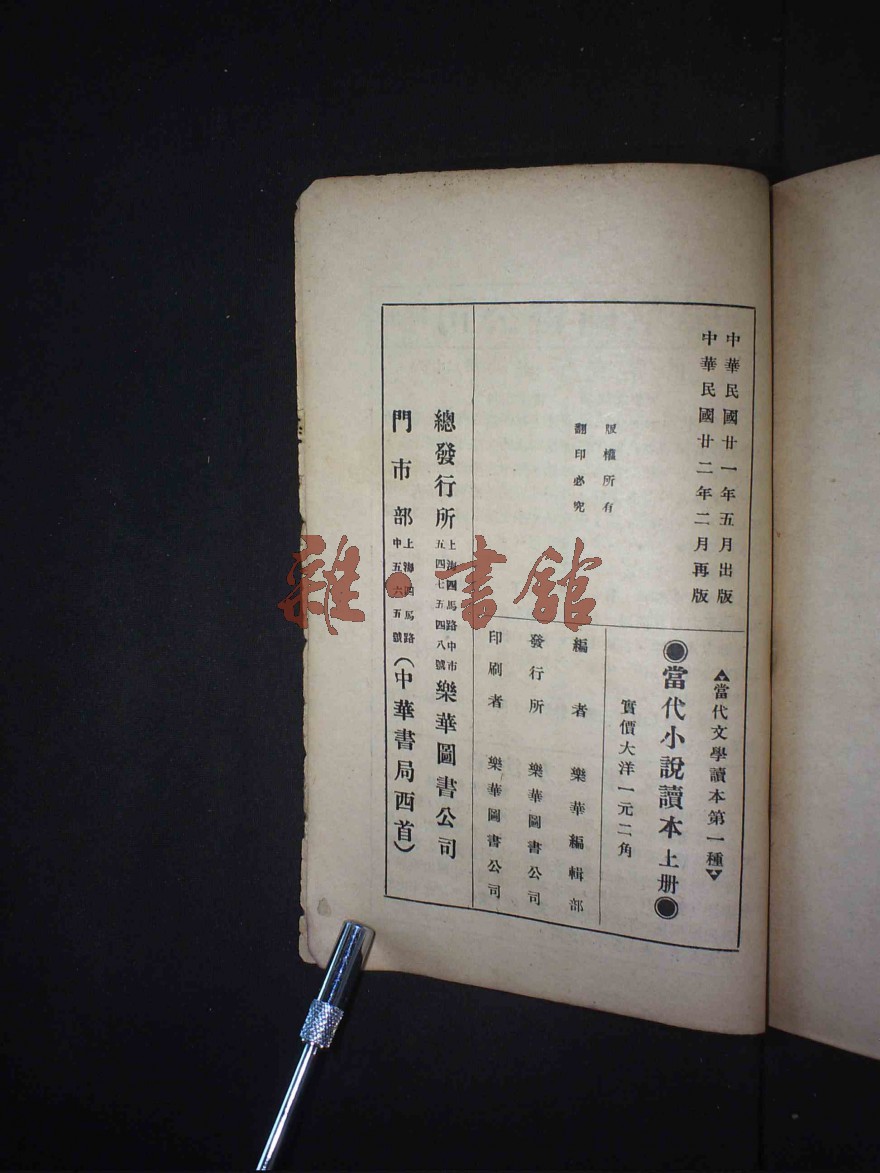 中華民國廿一年五月出版
中華民國廿二年二月再版
版權所有
翻印必究
▲當代文學讀本第一種▼
◉當代小說讀本 上册◉
實價大洋一元二角
編者 樂華編輯部
發行所 樂華圖書公司
印刷者 樂華圖書公司
總發行所 上海四馬路中市 五四七五四八號 樂華圖書公司
門市部 上海四馬路 中五六五號 (中華書局西首)
雜·書館